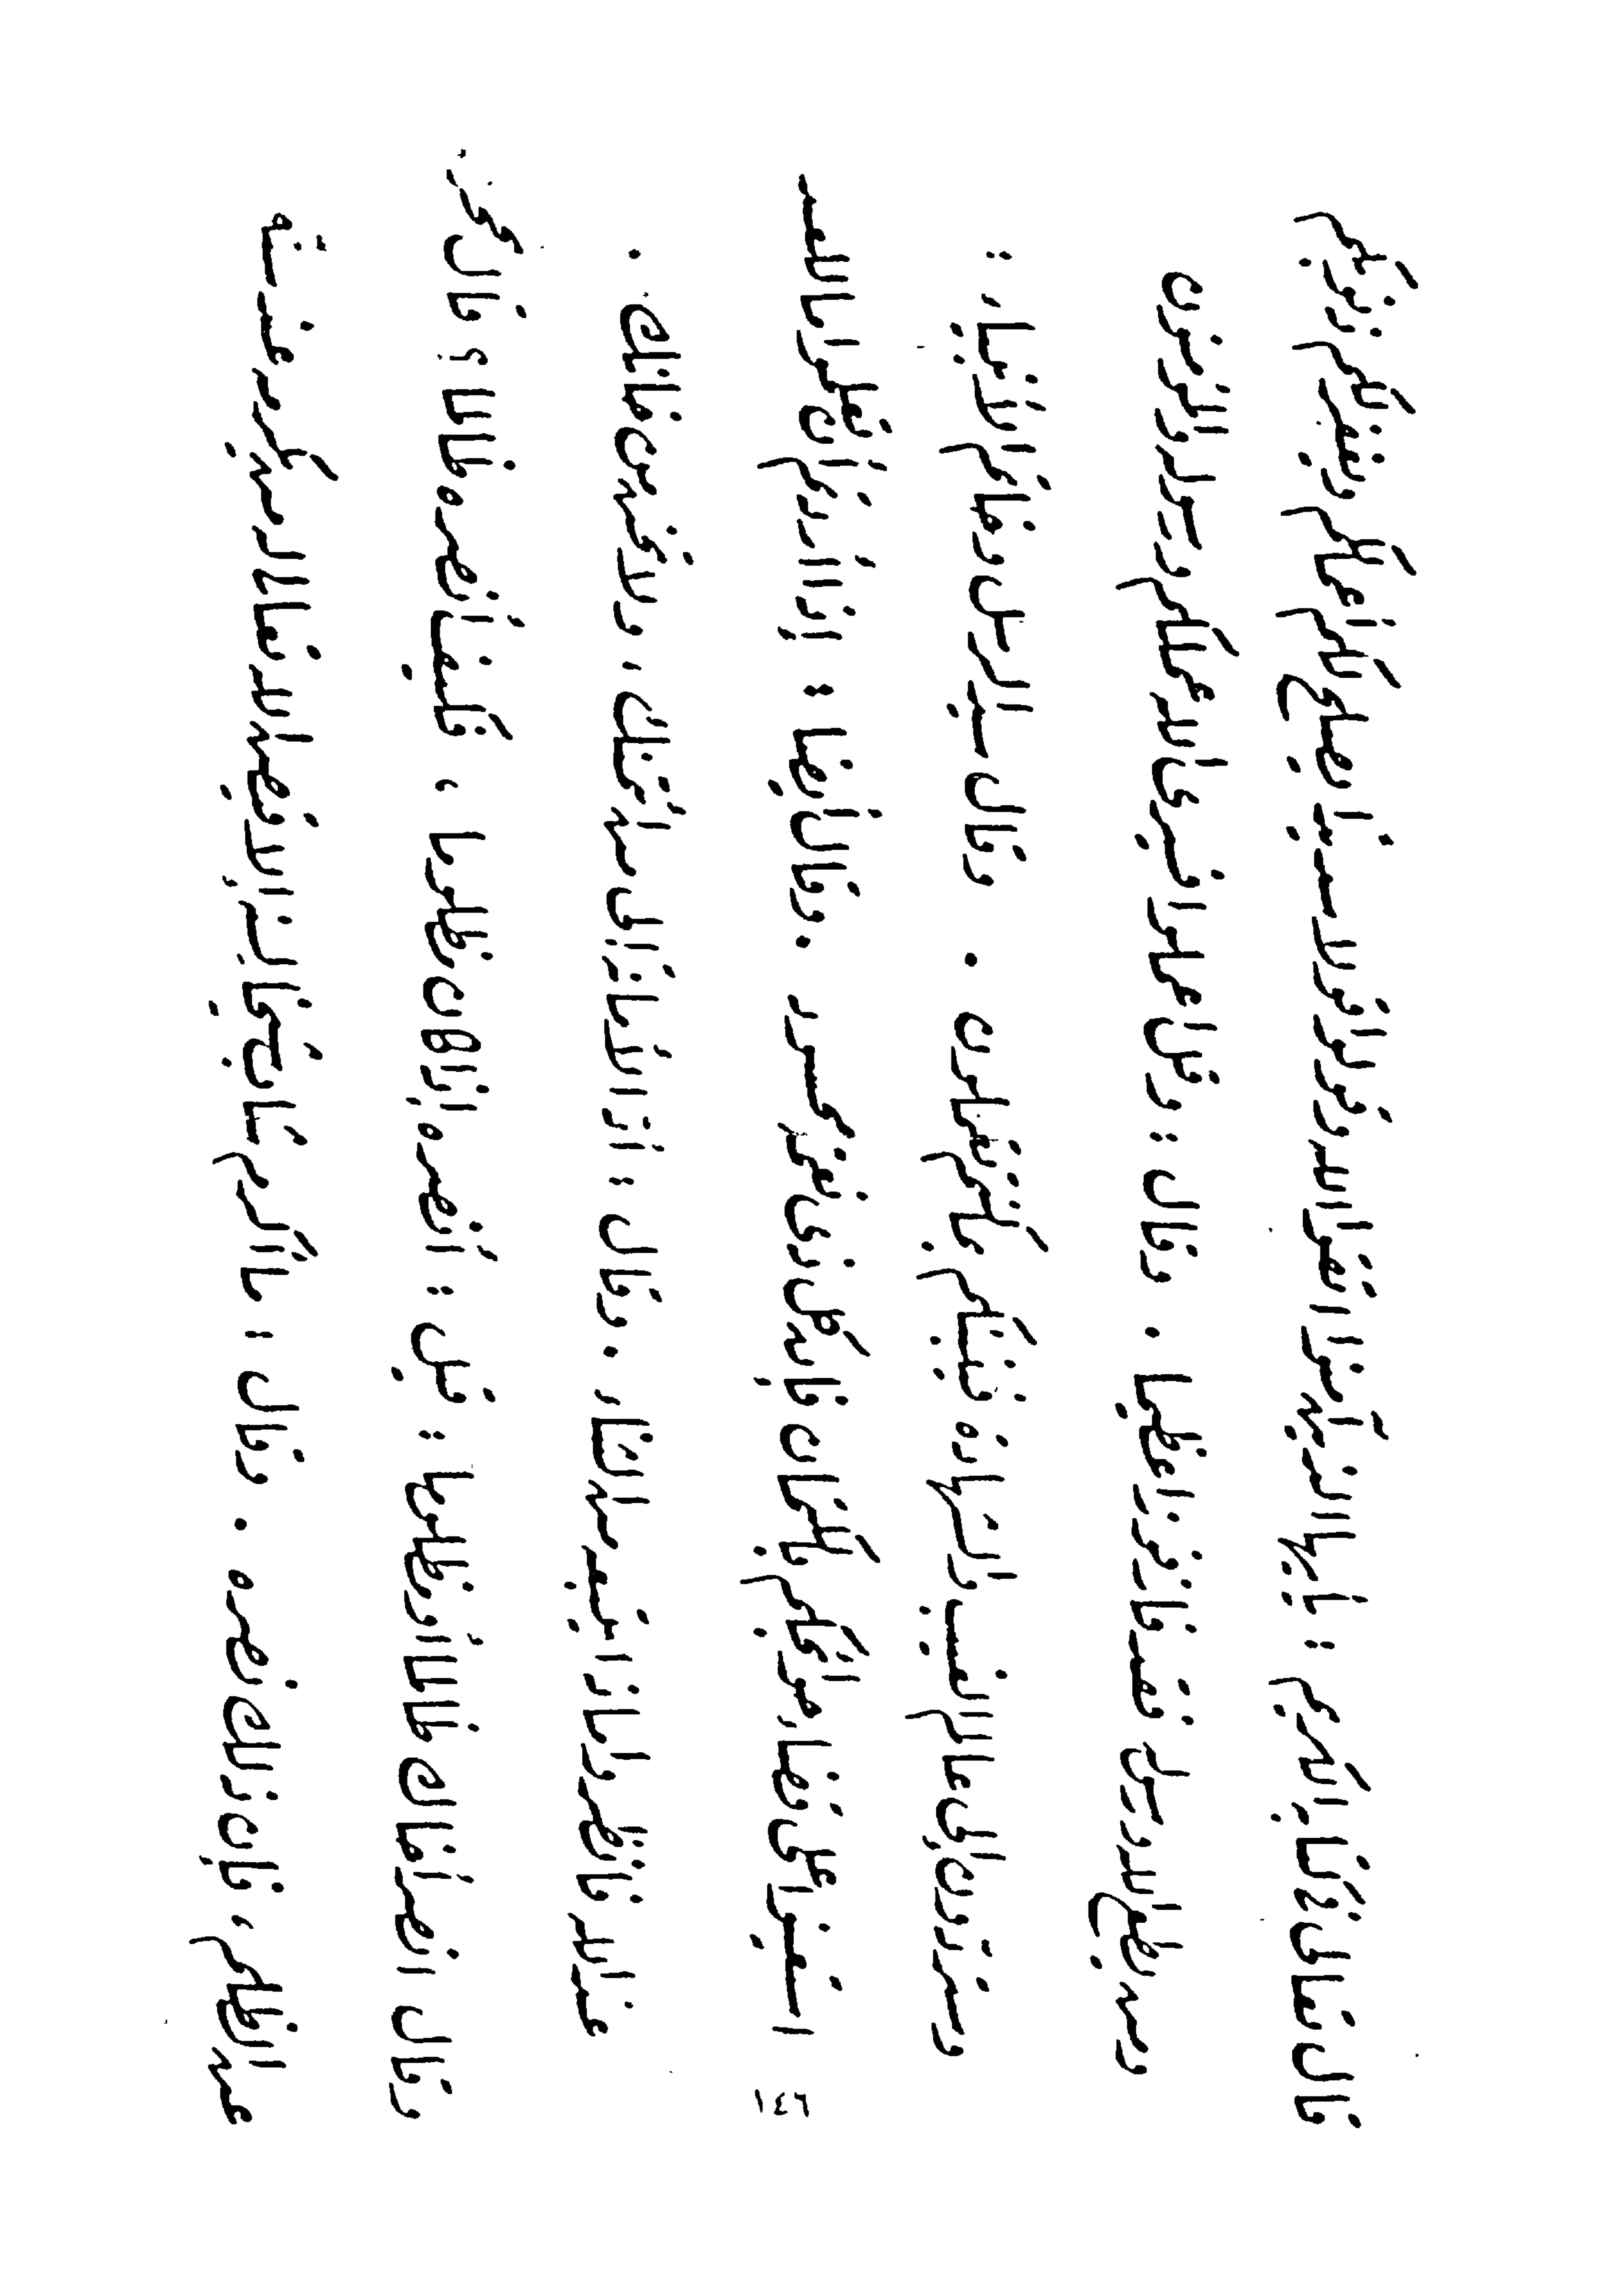 قال تعالى في كتابه الكريم : يأيها الذين آمنوا اتقوا الله وقولوا قولا سديدا يصلح لكم أعمالكم ويغفر لكم ذنوبكم
ومن يطع الله ورسوله فقد فاز فوزا عظيما . وقال : وقل اعملوا فسيرى الله عملكم ورسوله والمؤمنون
وستردون إلى عالم الغيب والشهادة فينبئكم بما كنتم تعملون . وقال سيد الرسل وخاتم الأنبياء :
استعينوا على قضاء حوائجكم بالكتمان فإن كل ذي نعمة محسود . وقال أيضا : إذا أردتم أن تعلموا ما للعبد
عند الله فانظروا ماذا يتبعه من الثناء . وقال : أد الأمانة إلى من ائتمنك ، ولا تخن من خانك .
وقال انصر أخاك ظالما أو مظلوما : قيل : أنصره إذا كان مظلوما ، فكيف أنصره ظالما ؟ قال تحجزه
عن الظلم ، فإن ذلك نصره . وقال : ما أكرم شاب شيخا لسنه إلا قيض الله تعالى له من يكرمه عند سنه
١٤٦